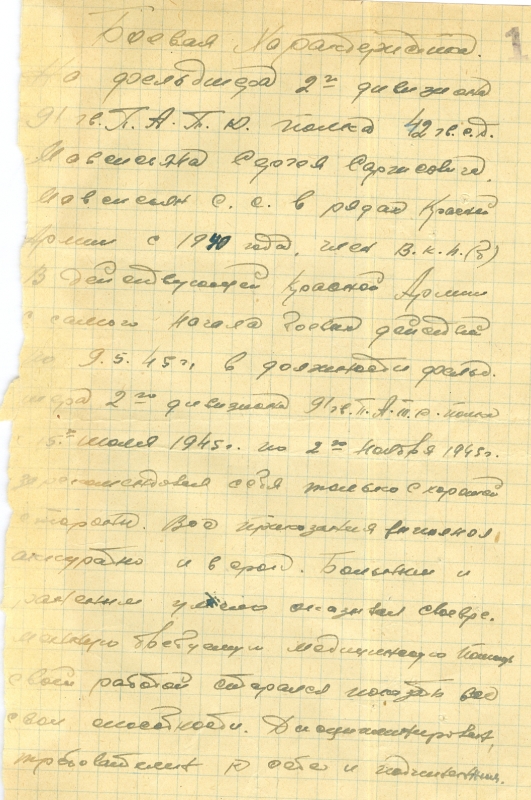 1
Боевая Характеристика.
На фельдшера 2го дивизиона
91 гв. П. А. Т. Ю. полка 42 гв. с.д.
Мовсисяна Сергея Саргисовича.
Мовсисян С. С. в рядах Красной
Армии с 1940 года, член В.К.П.(б)
В действующей Красной Армии
с самого начала боевых действий
по 9.5.45 г, в должности фельд.
шера 2го дивизиона 91 гв. П. А. Т. полка
с 15го июля 1945 г. по 2го ноября 1945 г.
зарекомендовал себя только с хорошей
стороны. Все приказания выполнял
аккуратно и в срок. Больным и
раненым умело оказывал своевре.
менную требуемую медицинскую помощь
своей работой старался показать все
свои способности. Дисциплинирован,
требователен к себе и подчиненным.